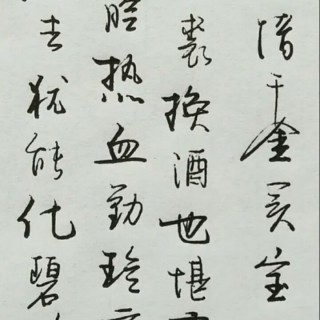 惜千金买宝
裘换酒也堪
腔热血勤珍
去犹能化碧